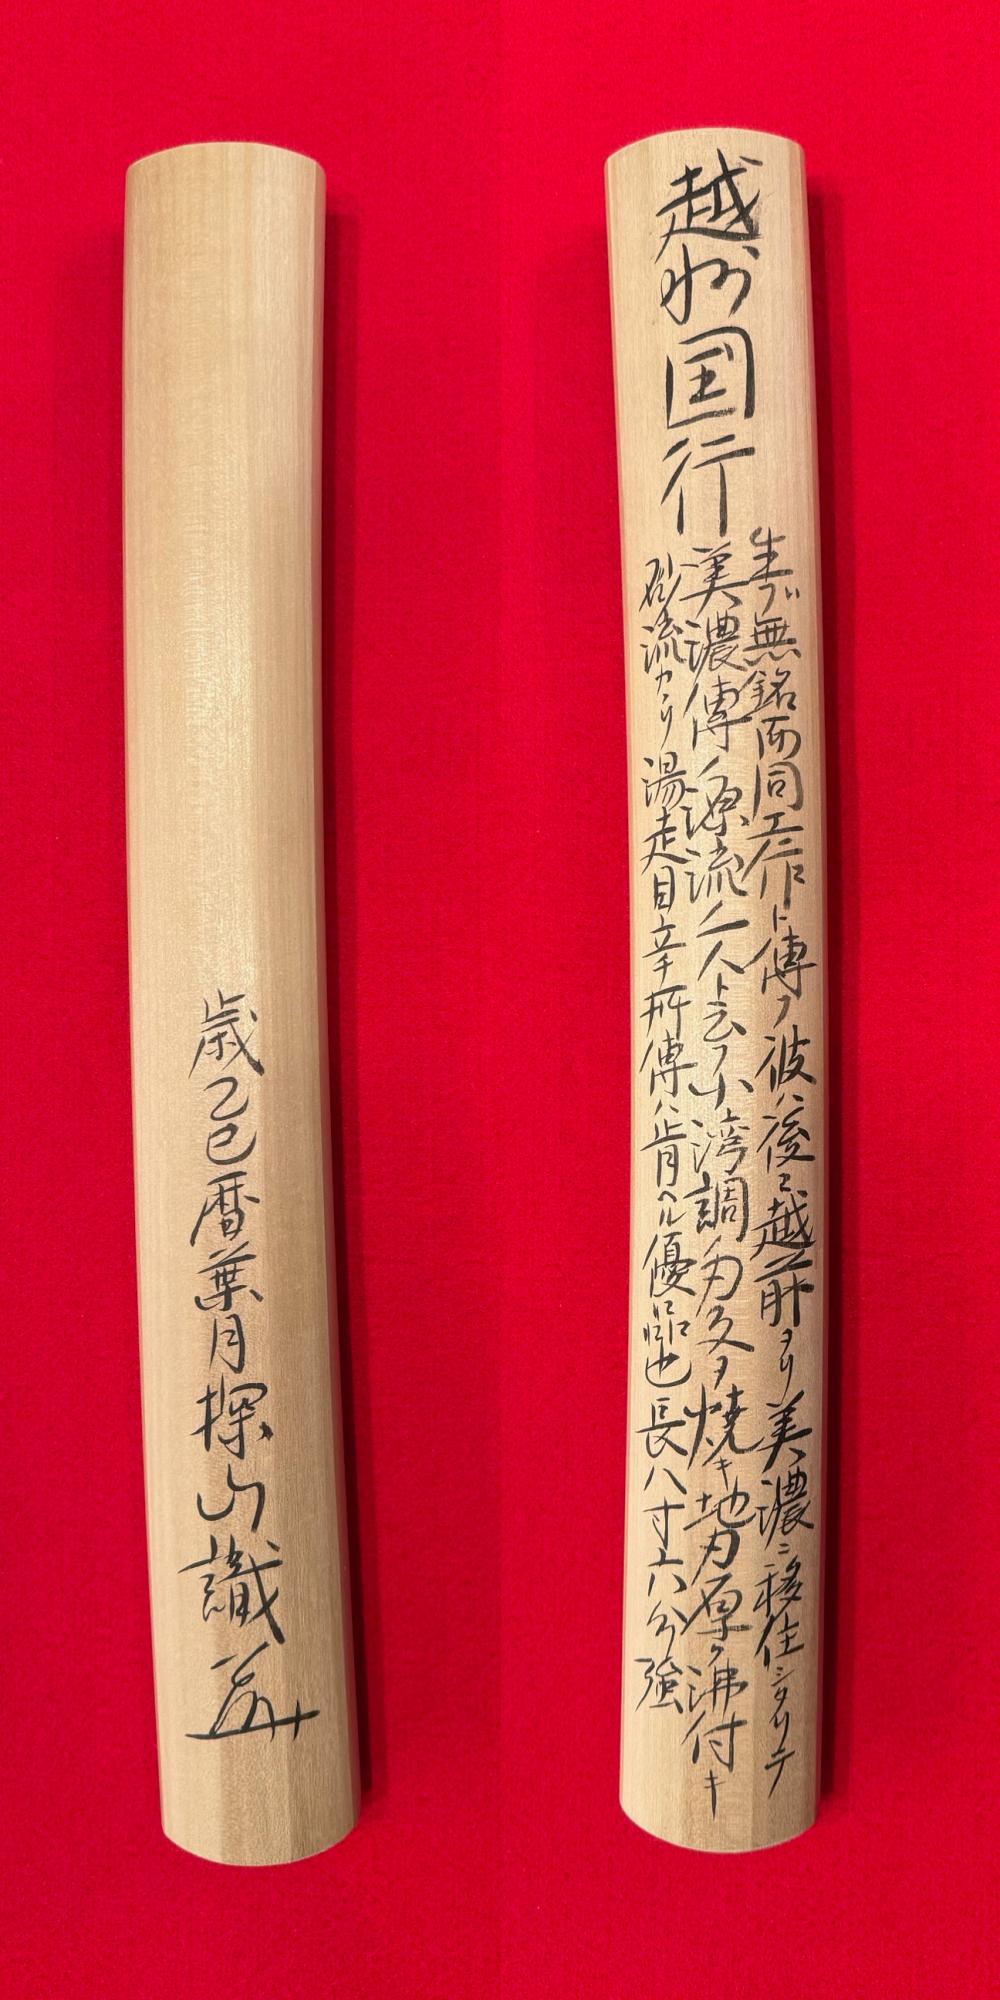 越州国行
生ブ無銘而同工作ト傳フ彼ハ後ニ越前ヨリ美濃ニ移住シタリテ
美濃傳ノ源流ノ一人ト云フ小湾調ノ刃文ヲ焼キ地刃厚ク沸付キ
砂流カヽリ湯走目立チ所傳ハ肯ヘル優品也 長八寸六分強
歳乙巳暦葉月探山識